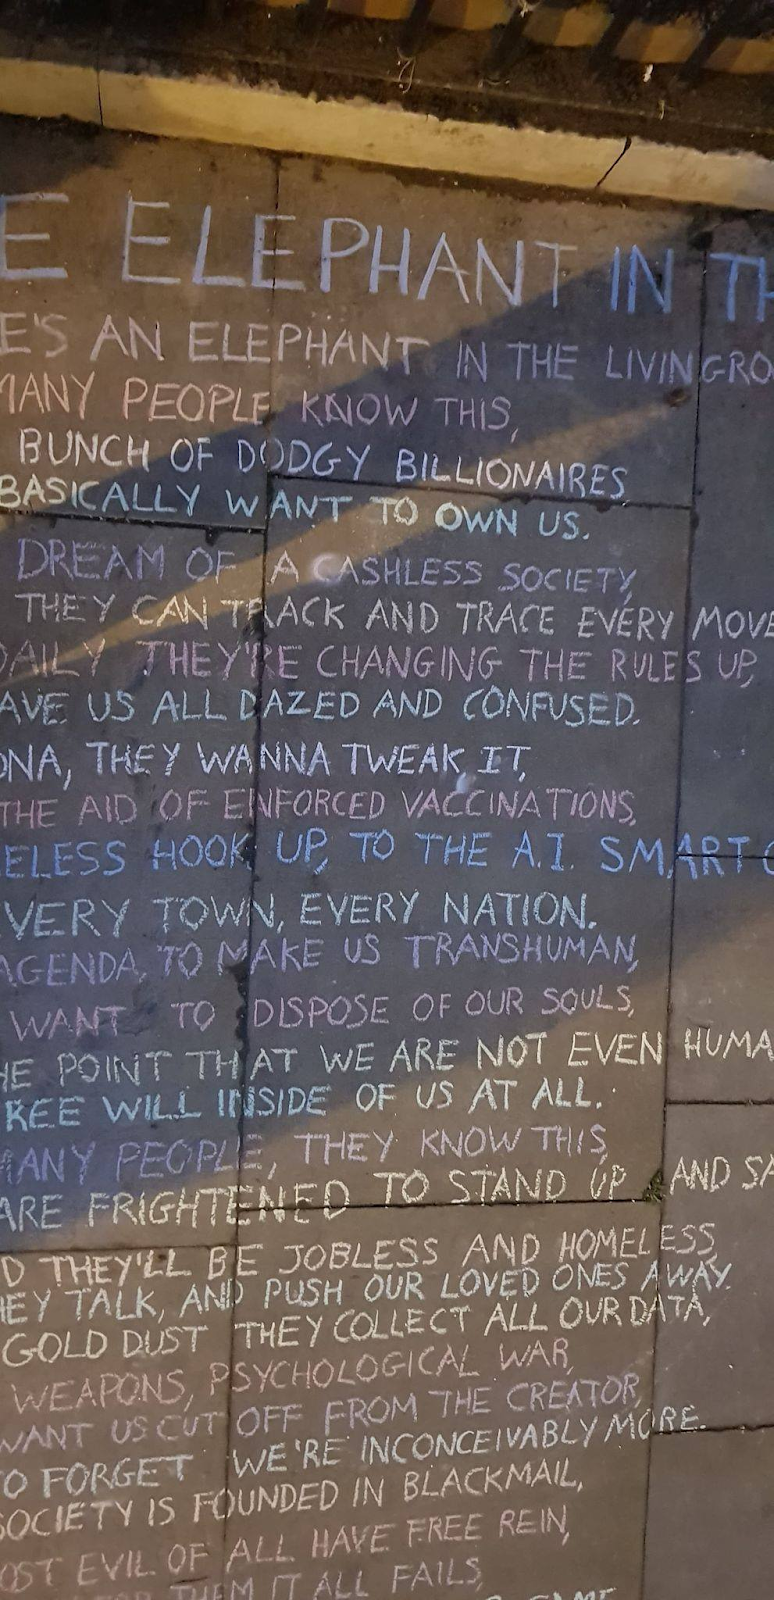 E ELEPHANT IN TH
E'S AN ELEPHANT IN THE LIVINGROO
MANY PEOPLE KNOW THIS,
BUNCH OF DODGY BILLIONAIRES
BASICALLY WANT TO OWN US.
DREAM OF A CASHLESS SOCIETY,
THEY CAN TRACK AND TRACE EVERY MOVE
DAILY THEY'RE CHANGING THE RULES UP,
AVE US ALL DAZED AND CONFUSED.
ONA, THEY WANNA TWEAK IT,
THE AID OF ENFORCED VACCINATIONS,
ELESS HOOK UP, TO THE A.I. SMART
VERY TOWN, EVERY NATION.
AGENDA, TO MAKE US TRANSHUMAN,
WANT TO DISPOSE OF OUR SOULS,
HE POINT THAT WE ARE NOT EVEN HUMA
REE WILL INSIDE OF US AT ALL.
MANY PEOPLE, THEY KNOW THIS,
ARE FRIGHTENED TO STAND UP AND SA
D THEY'LL BE JOBLESS AND HOMELESS,
HEY TALK, AND PUSH OUR LOVED ONES AWAY.
GOLD DUST THEY COLLECT ALL OUR DATA,
WEAPONS, PSYCHOLOGICAL WAR,
WANT US CUT OFF FROM THE CREATOR,
TO FORGET WE'RE INCONCEIVABLY MORE.
SOCIETY IS FOUNDED IN BLACKMAIL,
OST EVIL OF ALL HAVE FREE REIN,
THEM IT ALL FAILS,